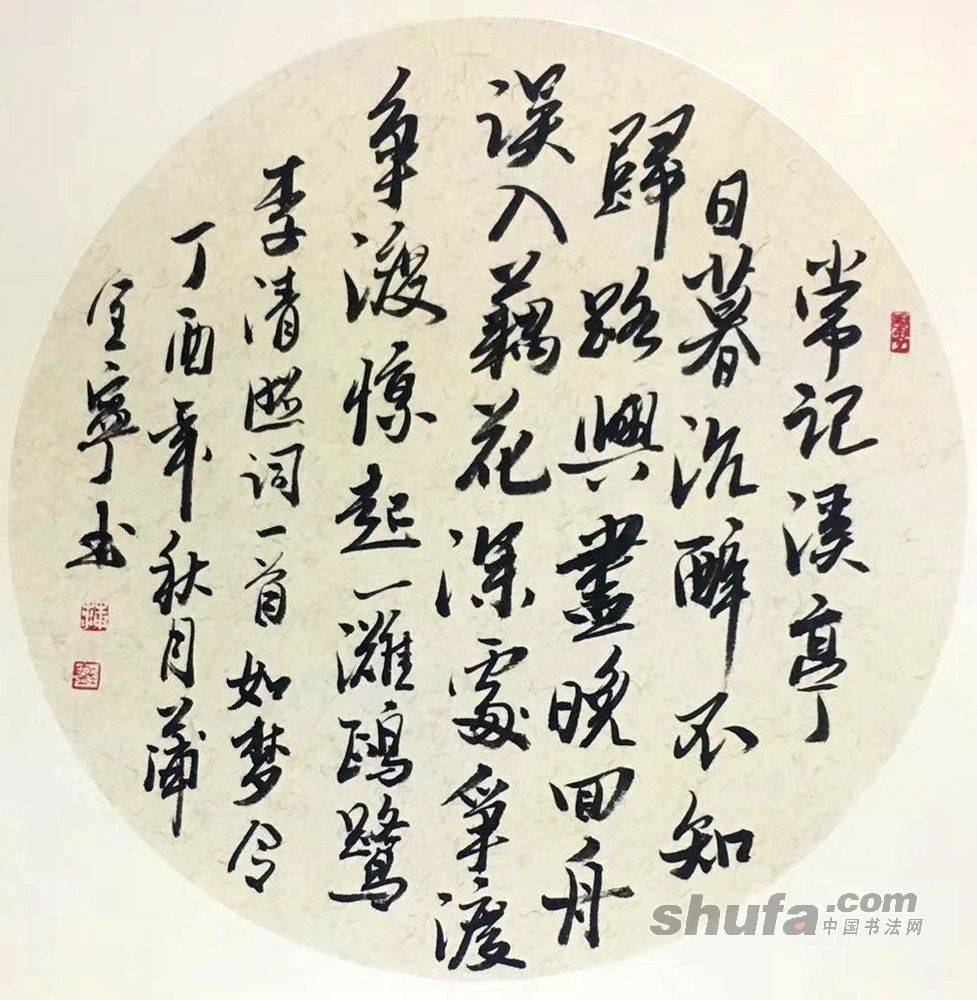 常记溪亭
日暮沉醉不知
歸路興盡晚回舟
误入藕花深處爭渡
争渡惊起一滩鸥鹭
李清照词一首如梦令
丁酉年秋月蒲
宜寧书
shufa.com
中国书法网